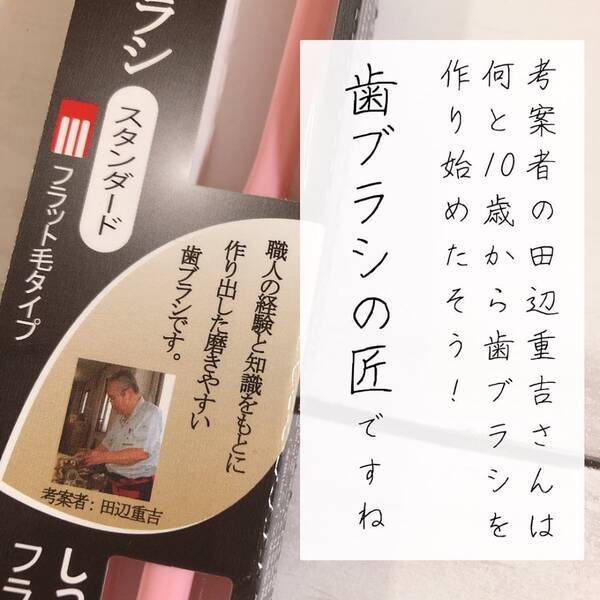 考案者の田辺重吉さんは
何と10歳から歯ブラシを
作り始めたそう！
歯ブラシの匠ですね
ラシ
スタンダード
フラット毛タイプ
職人の経験と知識をもとに
作り出した磨きやすい
歯ブラシです。
考案者：田辺重吉
しつ
フラ